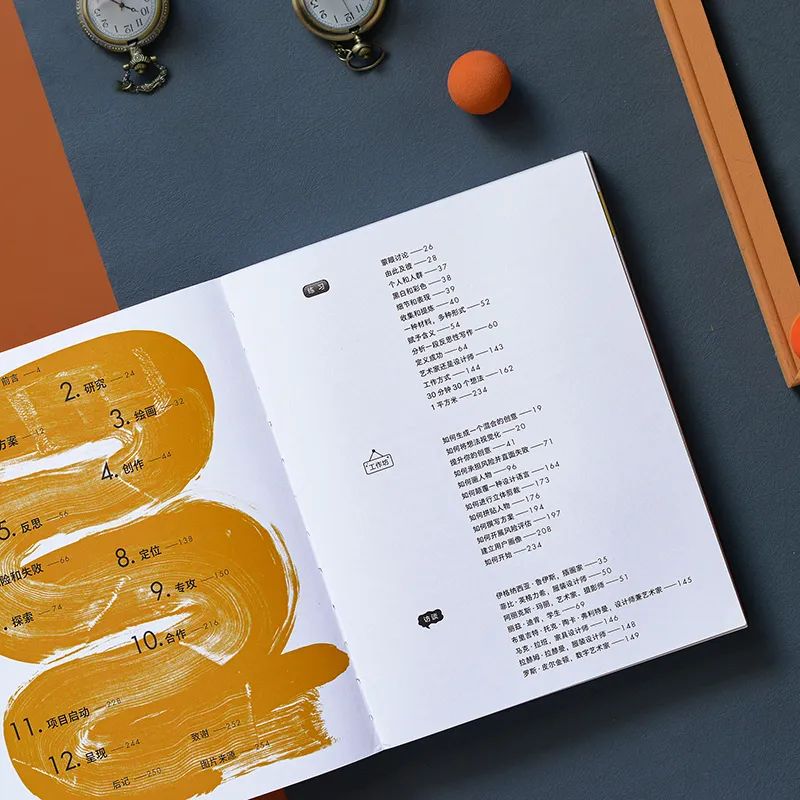 前言——4
2. 研究——24
方案——12
3. 绘画——32
4. 创作——44
5. 反思——56
险和失败——66
8. 定位——138
. 探索——74
9. 专攻——150
10. 合作——216
11. 项目启动——228
12. 呈现——244
致谢——252
后记——250
图片来源——254
练习
蒙眼讨论——26
由此及彼——28
个人和人群——37
黑白和彩色——38
细节和表现——39
收集和提炼——40
一种材料，多种形式——52
赋予含义——54
分析一段反思性写作——60
定义成功——64
艺术家还是设计师——143
工作方式——144
30 分钟 30 个想法——162
1 平方米——234
工作坊
如何生成一个混合的创意——19
如何将想法视觉化——20
提升你的创意——41
如何承担风险并直面失败——71
如何画人物——96
如何颠覆一种设计语言——164
如何进行立体剪裁——173
如何拼贴人物——176
如何撰写方案——194
如何开展风险评估——197
建立用户画像——208
如何开始——234
访谈
伊格纳西亚·鲁伊斯，插画家——35
菲比·英格力希，服装设计师——50
阿丽克斯·玛丽，艺术家、摄影师——51
丽兹·迪肯，学生——69
布里吉特·托克·陶卡·弗利特曼，设计师兼艺术家——145
马克·拉班，家具设计师——146
拉赫姆·拉赫曼，服装设计师——148
罗斯·皮尔金顿，数字艺术家——149